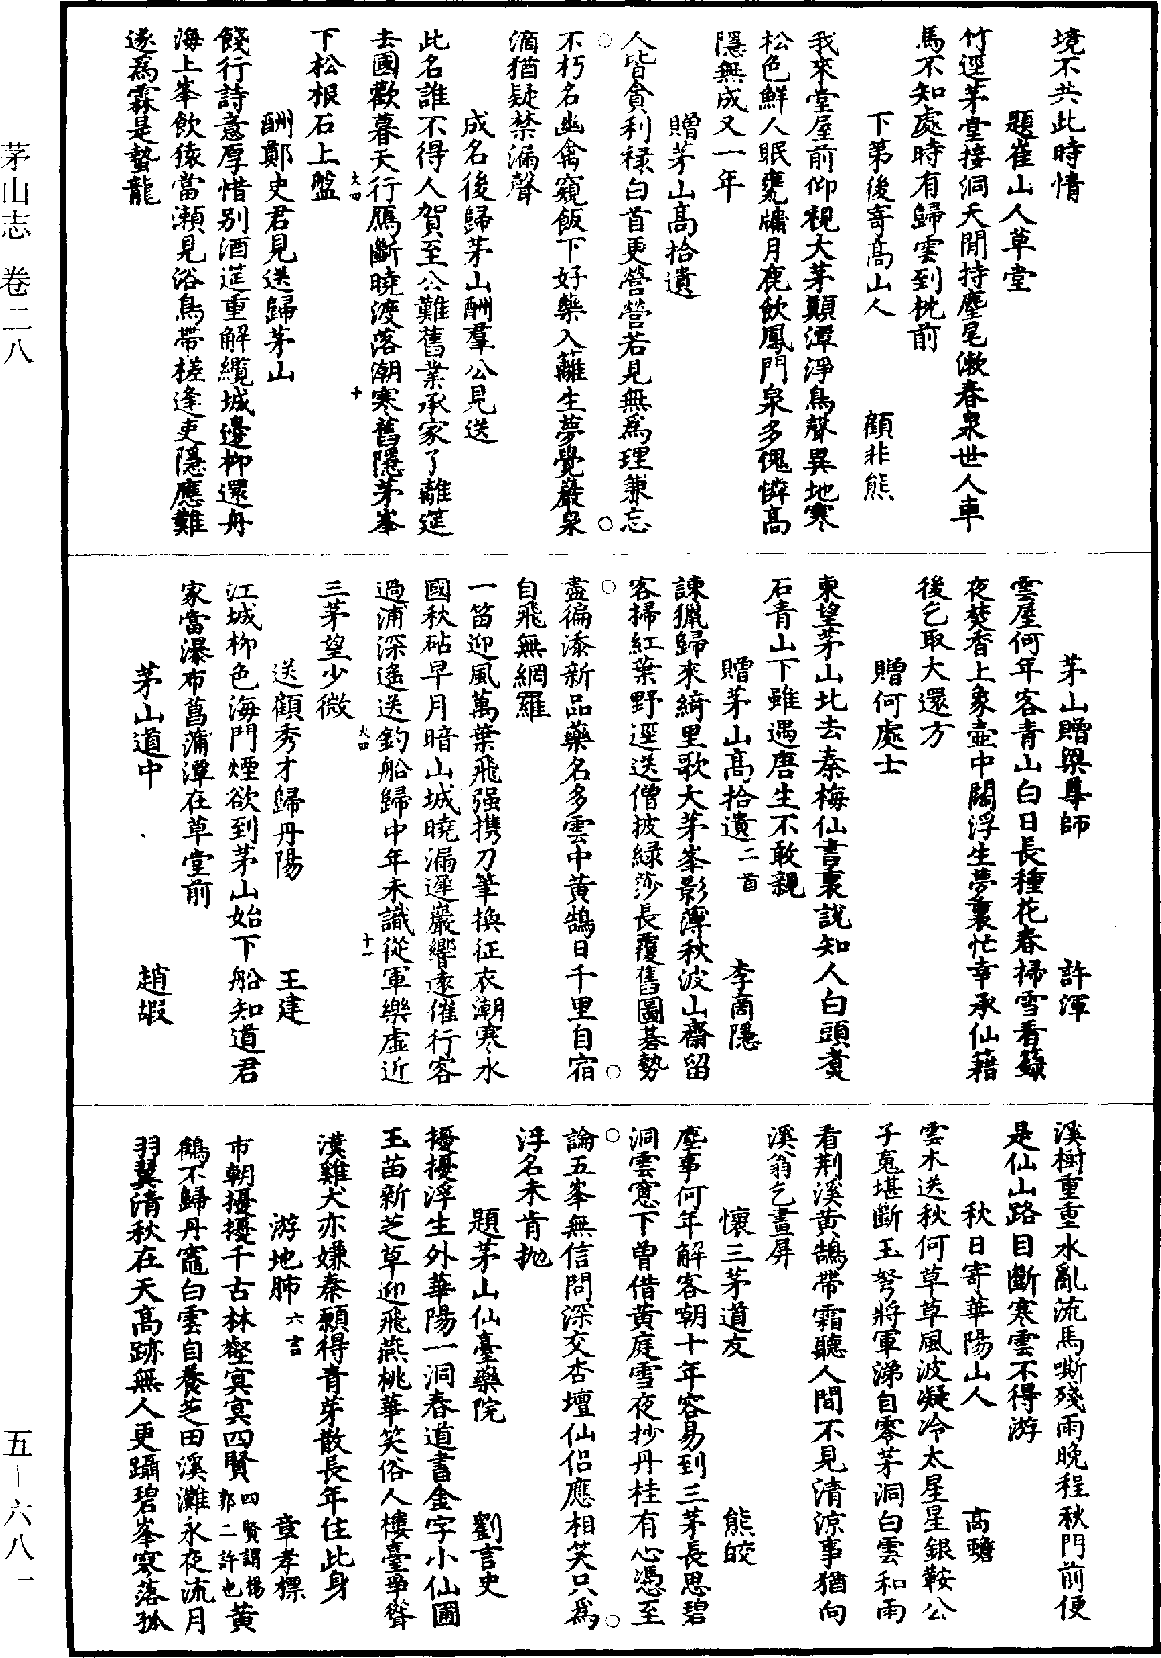 境不共此時情
題崔山人草堂
竹逕茅堂接洞天閒持麈尾漱春泉世人車
馬不知處時有歸雲到枕前
下第後寄高山人　顧非熊
我來堂屋前仰視大茅顛潭淨鳥聲異地寒
松色鮮人眠甕牖月鹿飲鳳門泉多愧憐高
隱無成又一年
贈茅山高拾遺
人皆貪利祿白首更營營若見無爲理兼忘
不朽名幽禽窺飯下好藥入籬生夢覺巖泉
滴猶疑禁漏聲
成名後歸茅山酬羣公見送
此名誰不得人賀至公難舊業承家了離筵
去國歡暮天行鴈斷曉渡落潮寒舊隱茅峯
大四　十
下松根石上盤
酬鄭史君見送歸茅山
餞行詩意厚惜别酒筵重解纜城邊柳還舟
海上峯飲猿當瀨見浴鳥帶槎逢吏隱應難
遂爲霖是蟄龍
茅山贈梁尊師　許渾
雲屋何年客青山白日長種花春掃雪看籙
夜焚香上象壺中闊浮生夢裏忙幸承仙籍
後乞取大還方
贈何處士
東望茅山北去秦梅仙書裏説知人白頭煑
石青山下雖遇唐生不敢親
贈茅山高拾遺二首　李商隱
諫獵歸來綺里歌大茅峯影薄秋波山齋留
客掃紅葉野逕送僧披緑莎長覆舊圖碁勢
盡徧添新品藥名多雲中黄鵠日千里自宿
自飛無網羅
一笛迎風萬葉飛强携刀筆換征衣潮寒水
國秋砧早月暗山城曉漏遲巖響遠催行客
過浦深遥送釣船歸中年未識從軍樂虚近
大四　十一
三茅望少微
送顧秀才歸丹陽　王建
江城柳色海門煙欲到茅山始下船知道君
家當瀑布菖蒲潭在草堂前
茅山道中　趙嘏
溪樹重重水亂流馬嘶殘雨晚程秋門前便
是仙山路目斷寒雲不得游
秋日寄華陽山人　高蟾
雲木送秋何草草風波凝冷太星星銀鞍公
子䰟堪斷玉弩將軍涕自零茅洞白雲和雨
看荆溪黄鵠帶霜聽人間不見清涼事猶向
溪翁乞畫屏
懷三茅道友　熊皎
塵事何年解客嘲十年容易到三茅長思碧
洞雲窓下曾借黄庭雪夜抄丹桂有心憑至
論五峯無信問深交杏壇仙侣應相笑只爲
浮名未肯抛
題茅山仙臺藥院　劉言史
擾擾浮生外華陽一洞春道書金字小仙圃
玉苗新芝草迎飛燕桃華笑俗人樓臺爭聳
漢雞犬亦嫌秦願得青芽散長年住此身
游地肺六言　章孝標
市朝擾擾千古林壑冥冥四賢四賢謂楊郭二許也黄
鶴不歸丹竈白雲自養芝田溪灘永夜流月
羽翼清秋在天高跡無人更躡碧峯寒落孤
茅山志　卷二八
五—六八一